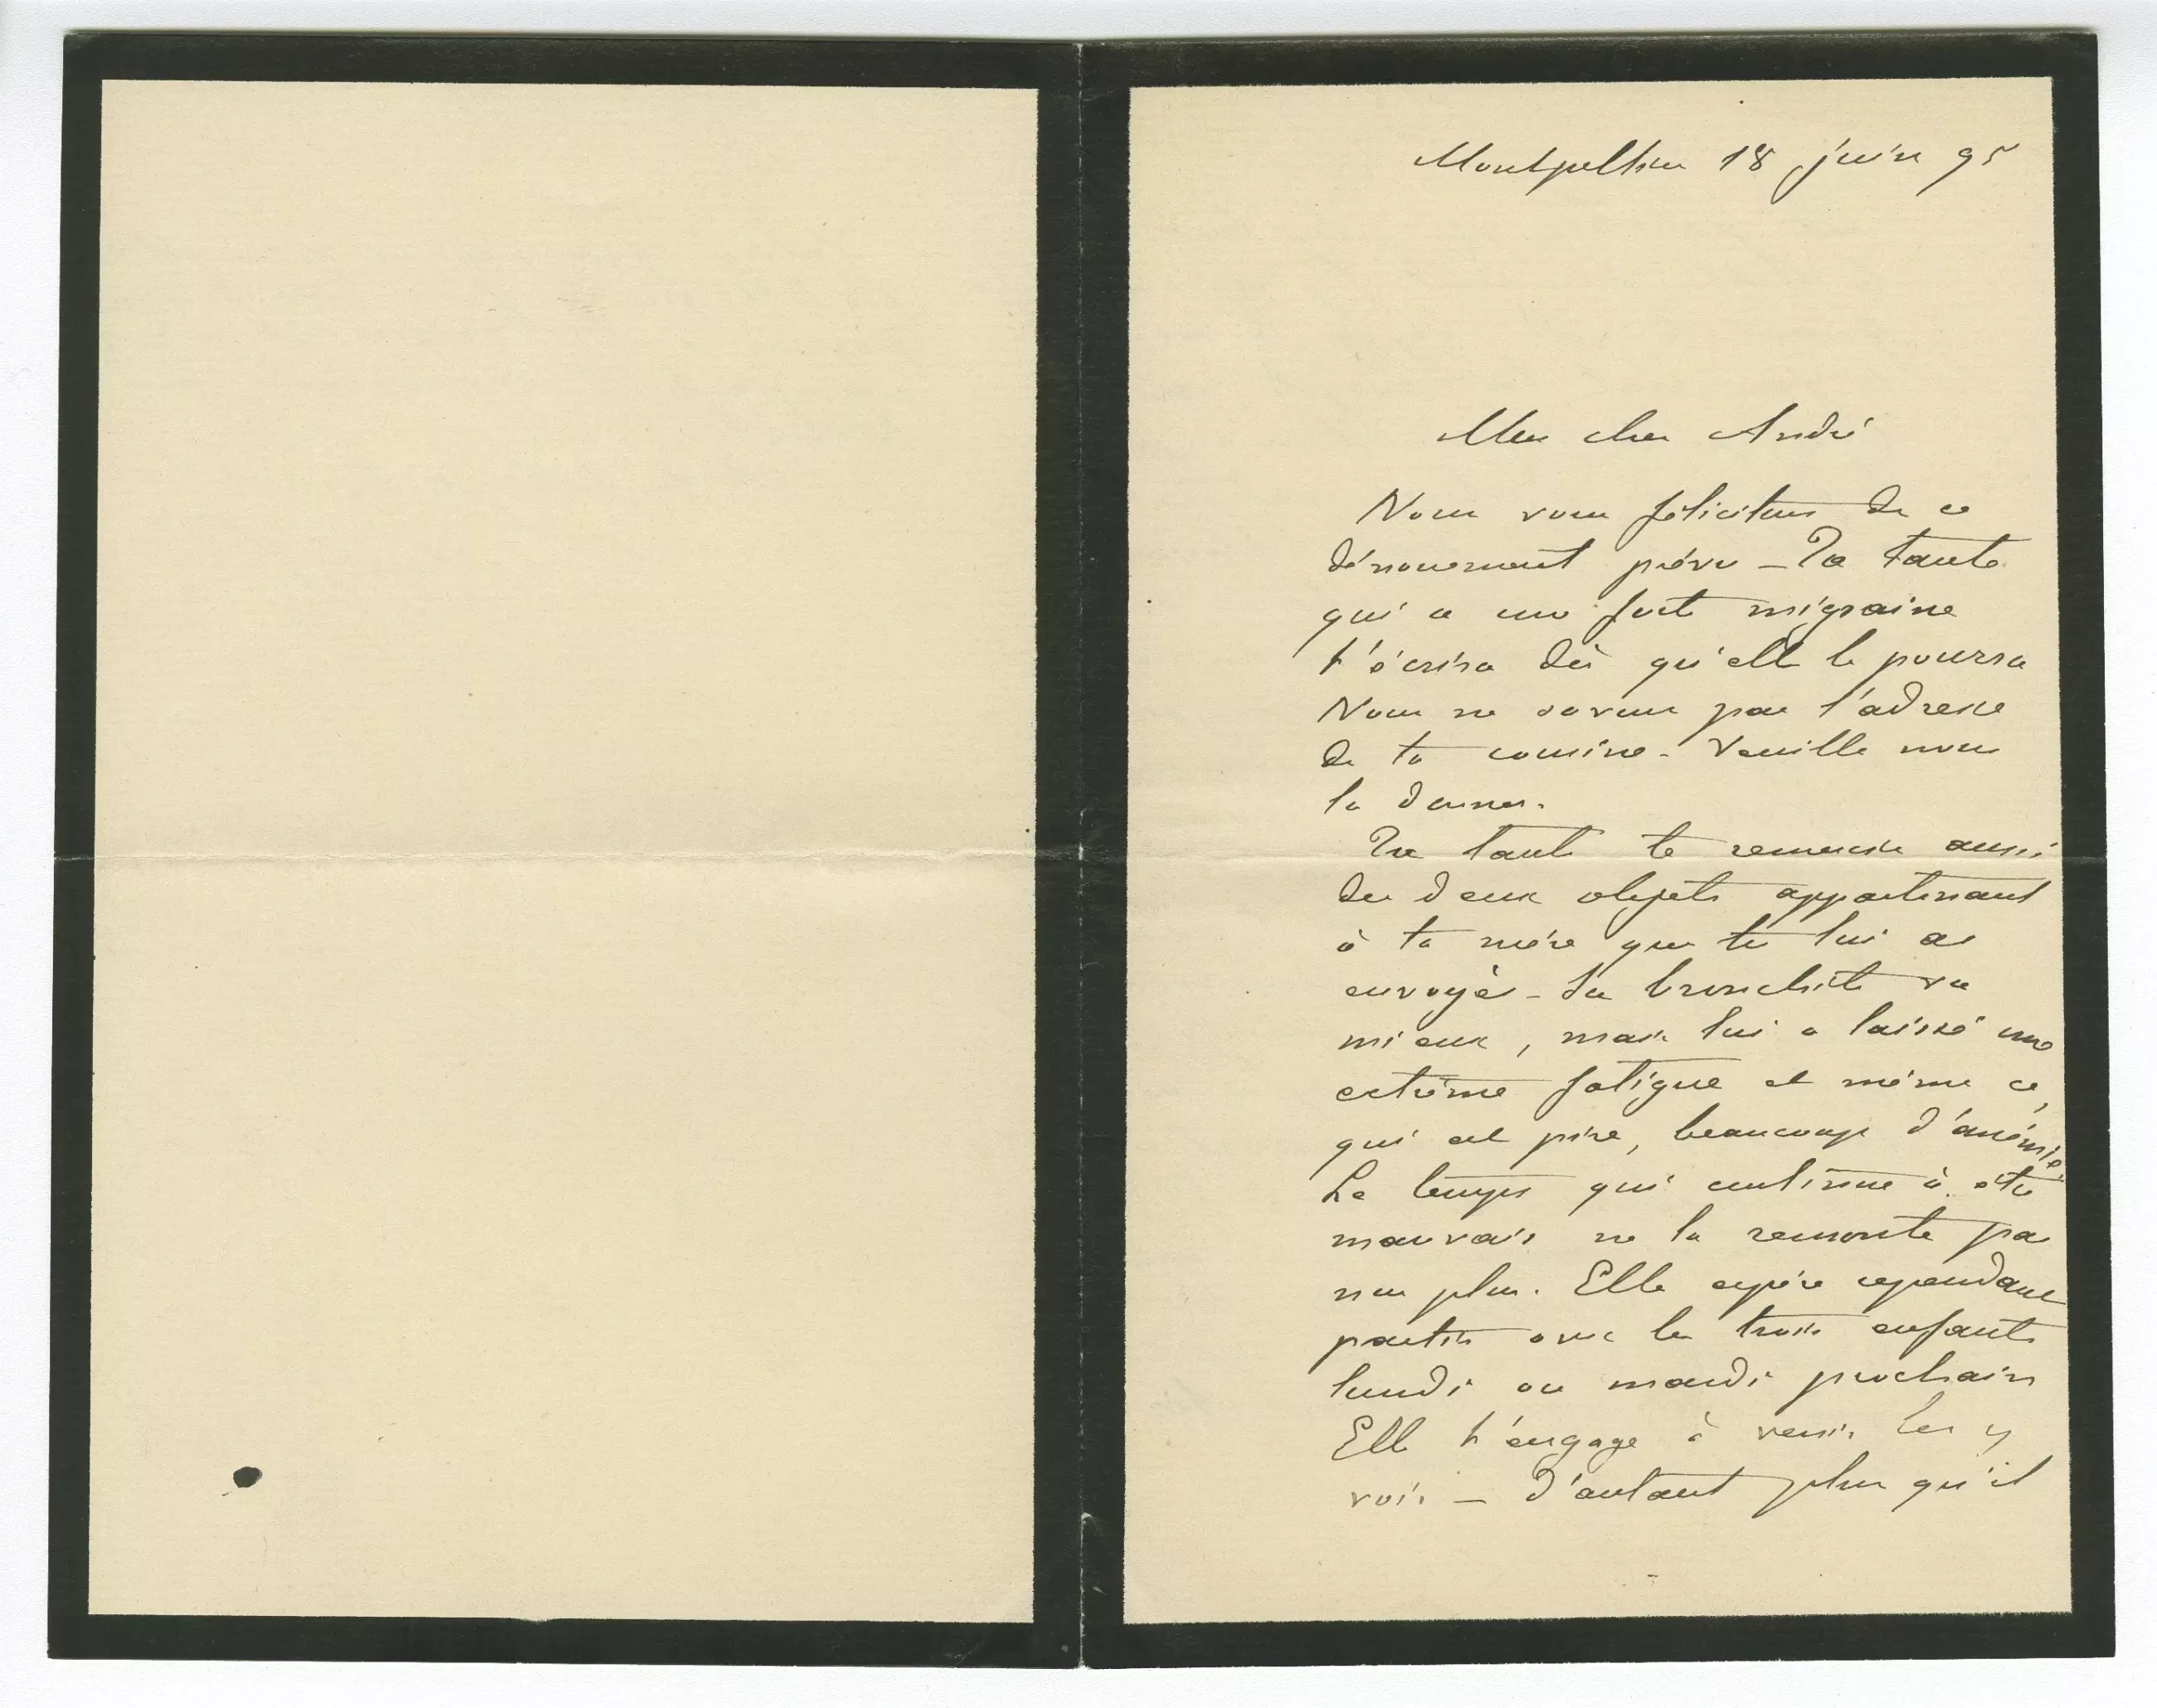 Montpellier 18 juin 95
Mon cher André
Nous vous félicitons de ce
dénouement prévu – Ta tante
qui a une forte migraine
t'écrira dès qu'elle le pourra
Nous ne savons pas l'adresse
de ta cousine – Veuille nous
la donner.
Ta tante te remercie aussi
des deux objets appartenant
à ta mère que tu lui as
envoyés – Sa bronchite va
mieux, mais lui a laissé une
extrême fatigue et même ce,
qui est pire, beaucoup d'anémie.
Le temps qui continue à être
mauvais ne la remonte pas
non plus. Elle espère cependant
partir avec les trois enfants
lundi ou mardi prochain
Elle t'engage à venir les y
voir – d'autant plus qu'il